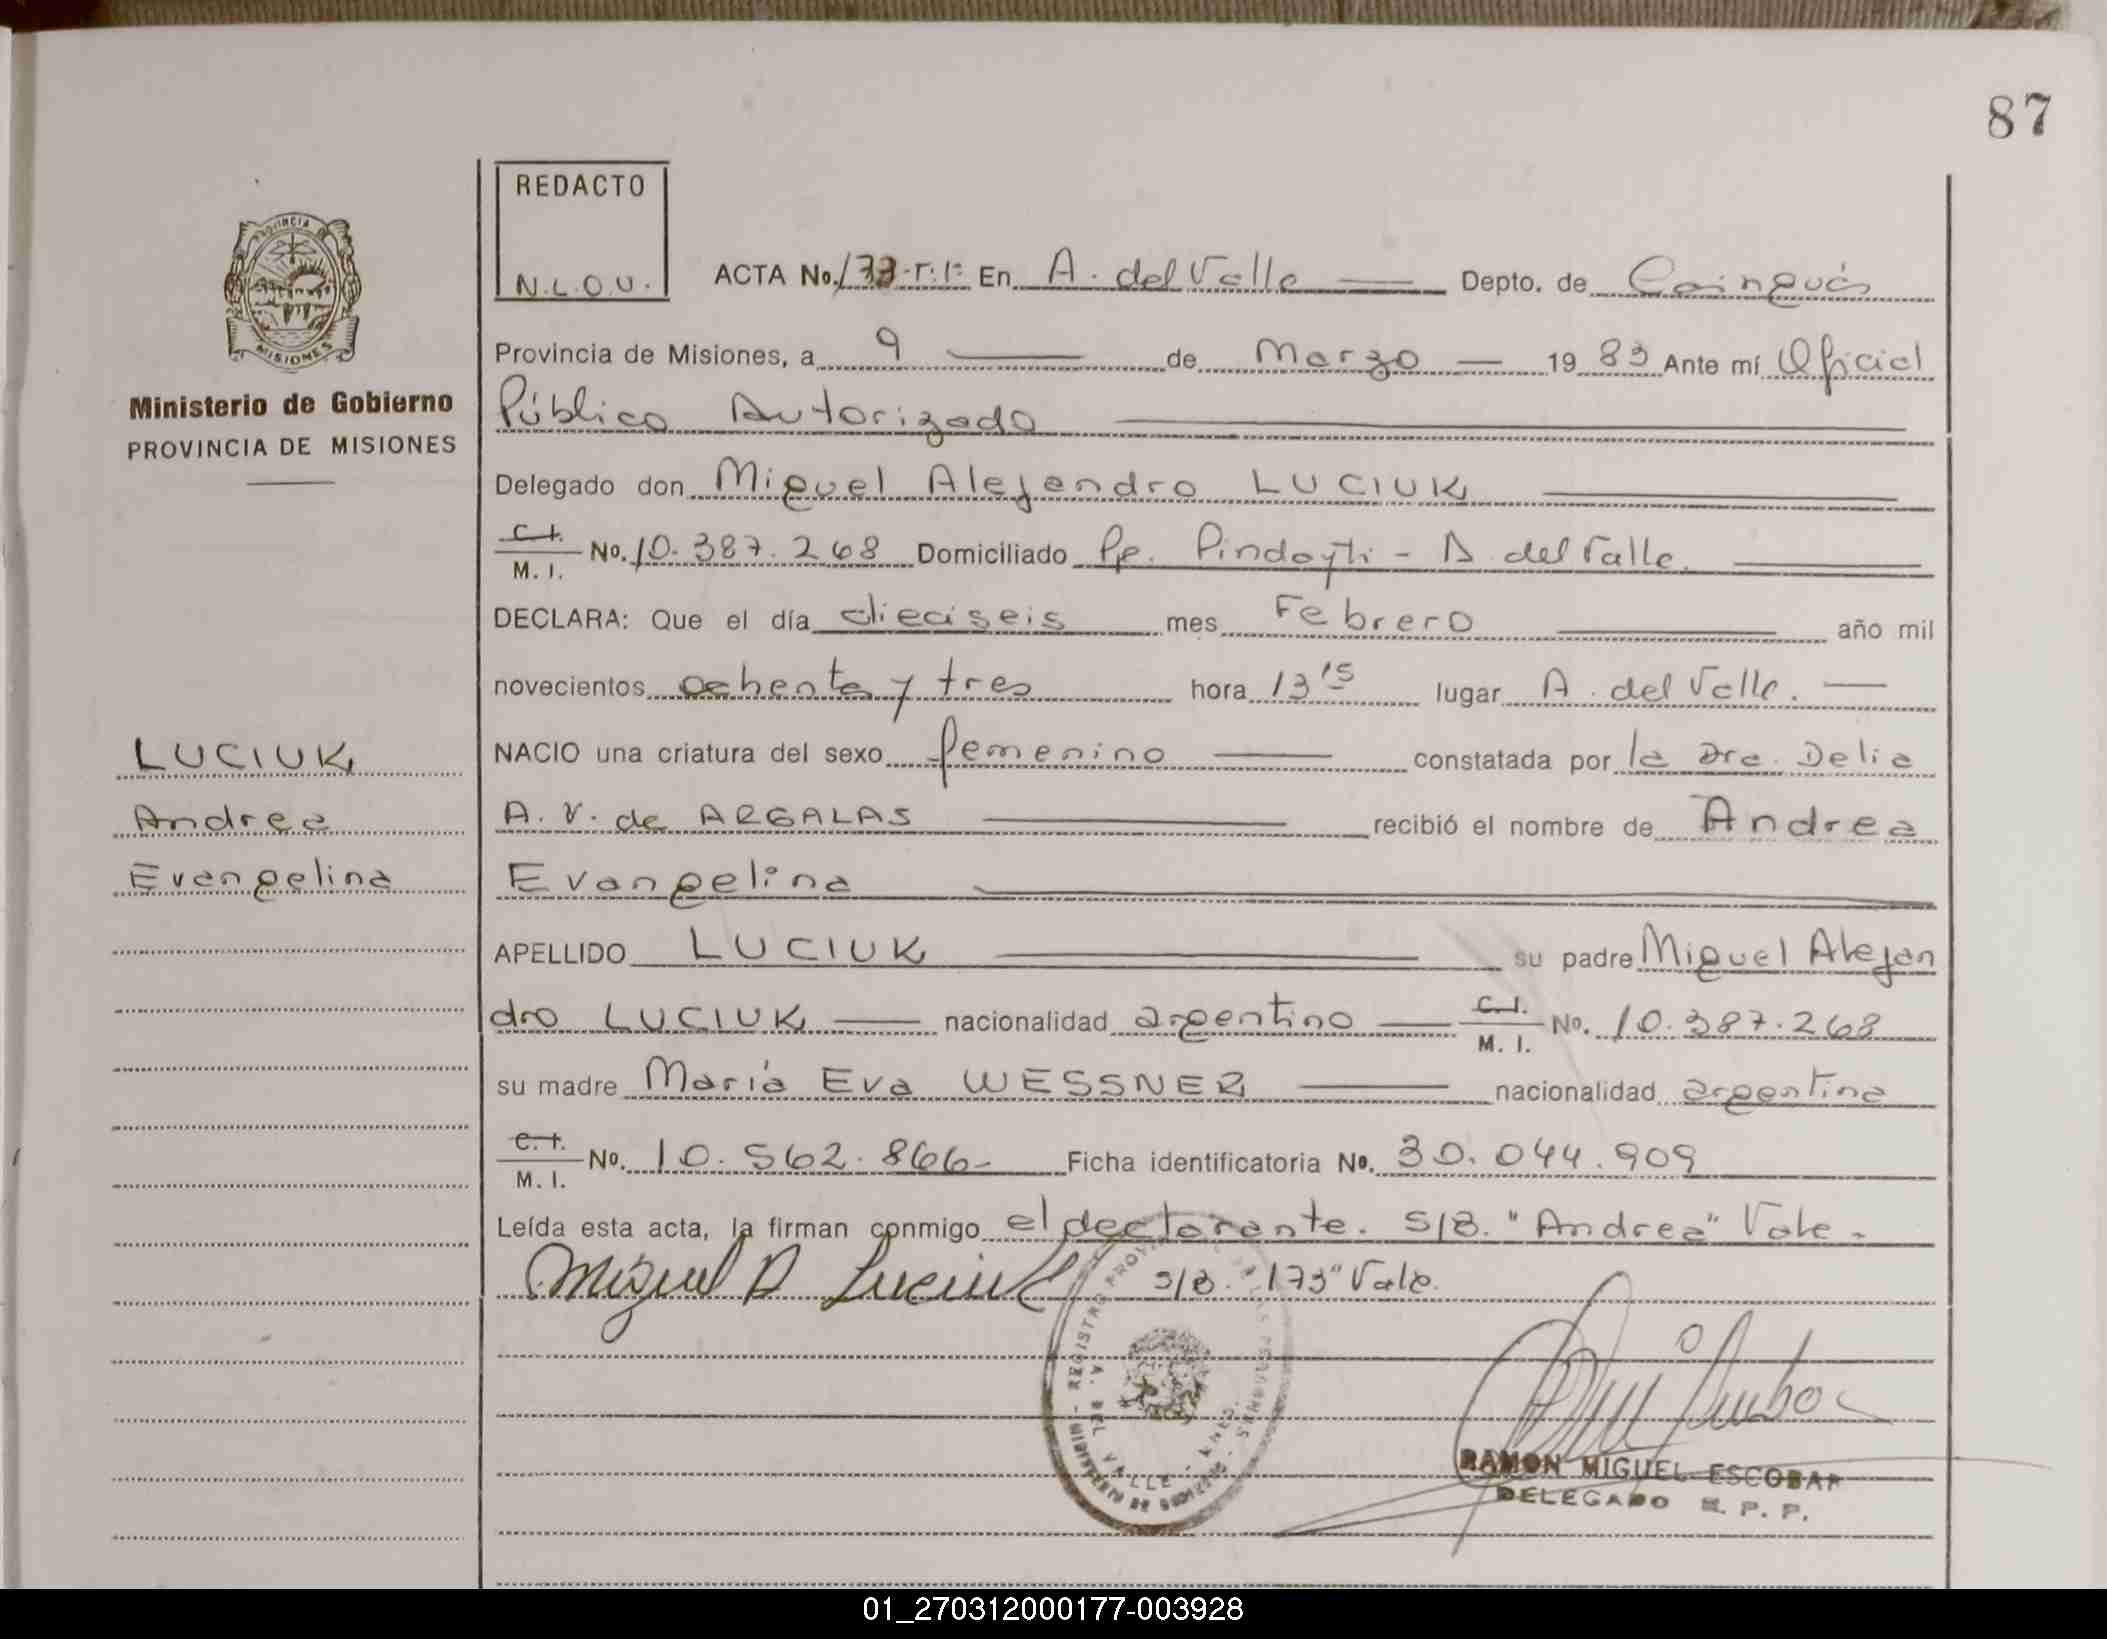 87
REDACTO
N.L.O.U.
PROVINCIA DE
MISIONES
Ministerio de Gobierno
PROVINCIA DE MISIONES
ACTA No. 173-T.1º En A. del Valle Depto. de Cainguás
Provincia de Misiones, a 9 de Marzo 1983 Ante mí Oficial
Público Autorizado
Delegado don Miguel Alejandro LUCIUK
C.I. M. I. No. 10.387.268 Domiciliado Pje. Pindayti - A. del Valle.
DECLARA: Que el día dieciseis mes Febrero año mil
novecientos ochenta y tres hora 13 15 lugar A. del Valle.
NACIO una criatura del sexo femenino constatada por la Dra. Delia
A. V. de ARGALAS recibió el nombre de Andrea
Evangelina
APELLIDO LUCIUK su padre Miguel Alejan
dro LUCIUK nacionalidad argentino C.I. M. I. No. 10.387.268
su madre María Eva WESSNER nacionalidad argentina
C.I. M. I. No. 10.562.866- Ficha identificatoria No. 30.044.909
Leída esta acta, la firman conmigo el declarante. S/B. "Andrea" Vale.
Miguel A Luciuk S/B. "173" Vale.
LUCIUK
Andrea
Evangelina
A. DEL VALLE
RAMON MIGUEL ESCOBAR
DELEGADO R. P. P.
01_270312000177-003928